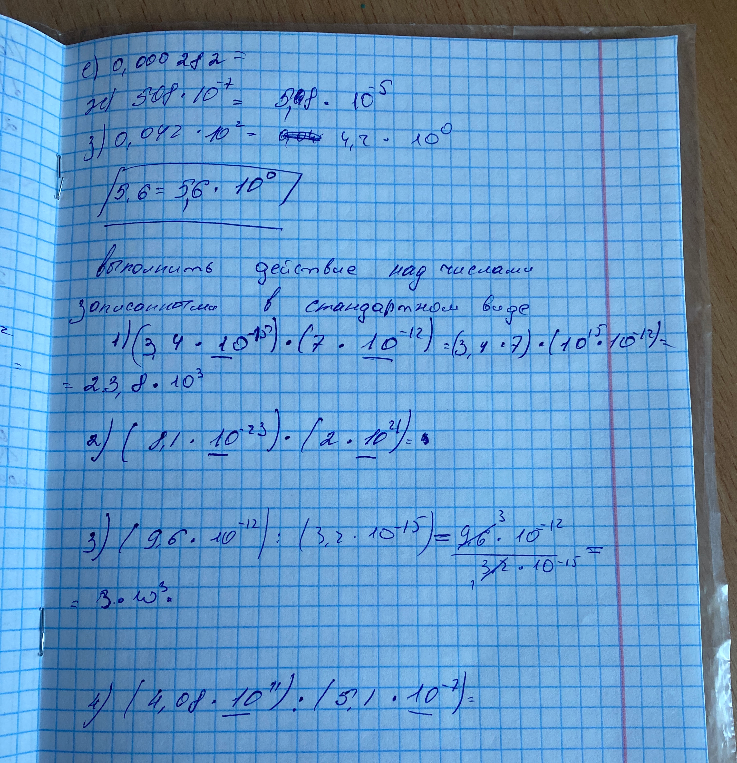 е) 0,000 282 =
ж) 508 · 10⁻⁷ = 5,08 · 10⁻⁵
з) 0,042 · 10² = 4,2 · 10⁰
5,6 = 5,6 · 10⁰
выполнить действие над числами
записанными в стандартном виде
1) (3,4 · 10⁻¹⁵) · (7 · 10⁻¹²) = (3,4 · 7) · (10¹⁵ · 10⁻¹²) =
= 23,8 · 10³
2) (8,1 · 10⁻²³) · (2 · 10²¹) =
3) (9,6 · 10⁻¹²) : (3,2 · 10⁻¹⁵) = 9,6 ³ · 10⁻¹² / ₁ 3,2 · 10⁻¹⁵ =
= 3 · 10³.
4) (4,08 · 10¹¹) : (5,1 · 10⁻⁷) =